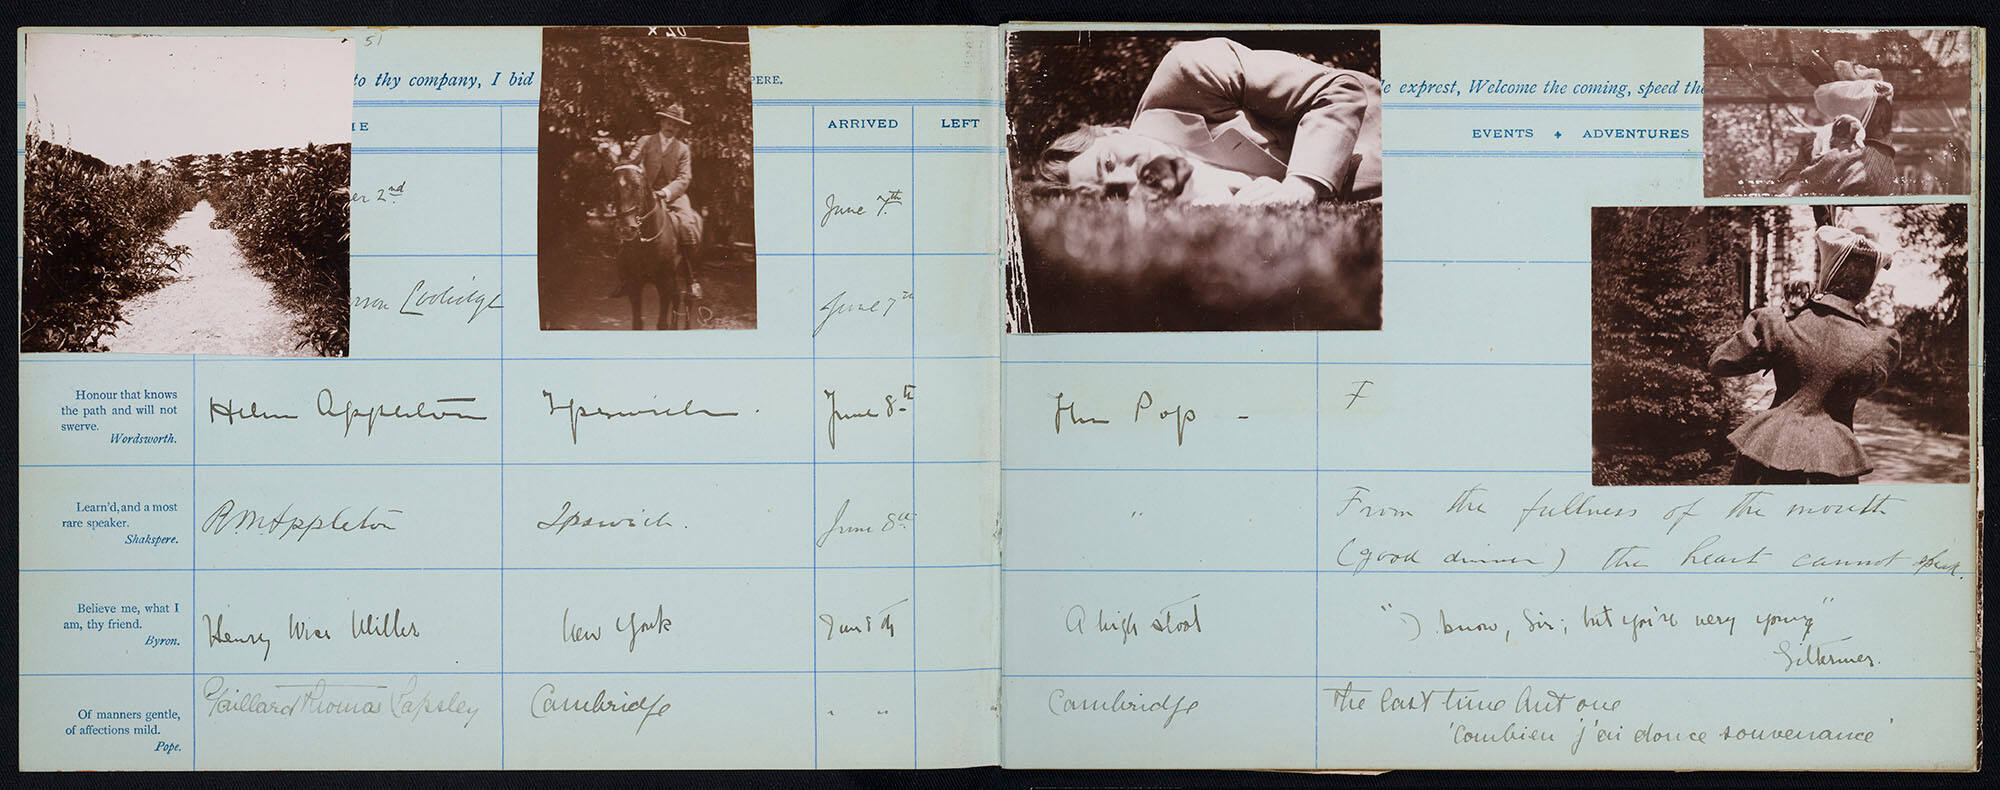 51
to thy company, I bid
PERE.
le exprest, Welcome the coming, speed the
ME
ARRIVED
LEFT
EVENTS + ADVENTURES
er 2nd
June 7th
Coolidge
June 7th
Honour that knows
the path and will not
swerve.
Wordsworth.
Helen Appleton
Ipswich.
June 8th
Pop -
F
Learn'd, and a most
rare speaker.
Shakspere.
R. M. Appleton
Ipswich.
June 8th
"
From the fullness of the mouth
(good dinner) the heart cannot speak.
Believe me, what I
am, thy friend.
Byron.
Henry Wise Miller
New York
June 8th
A high stool
"I know, Sir; but you're very young"
Of manners gentle,
of affections mild.
Pope.
Gaillard Thomas Lapsley
Cambridge
" "
Cambridge
The last time but one
'Combien j'ai douce souvenance'